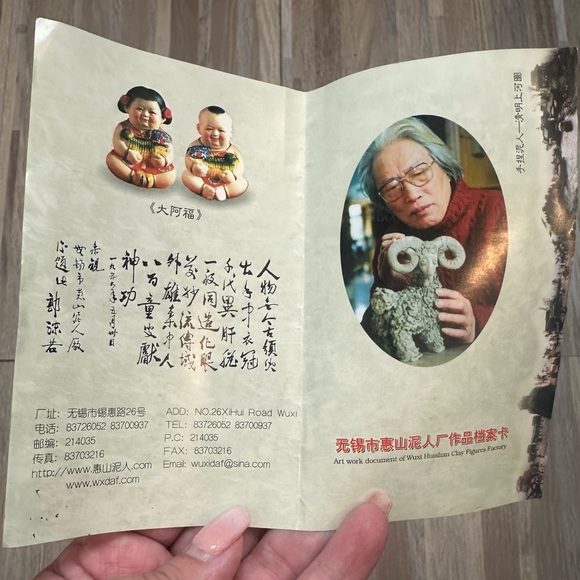 《大阿福》
人物無今古須臾
出手中衣冠
千代異肝膽
一般同造化眼
妙流傳域
外雄集中人
八百童叟獻
神功
郭沫若
厂址：无锡市锡惠路26号
电话：83726052 83700937
邮编：214035
传真：83703216
http://www.惠山泥人.com
www.wxdaf.com
ADD: NO.26XiHui Road Wuxi
TEL: 83726052 83700937
P.C: 214035
FAX: 83703216
Email: wuxidaf@sina.com
手捏泥人—清明上河图
无锡市惠山泥人厂作品档案卡
Art work document of Wuxi Huishan Clay Figures Factory